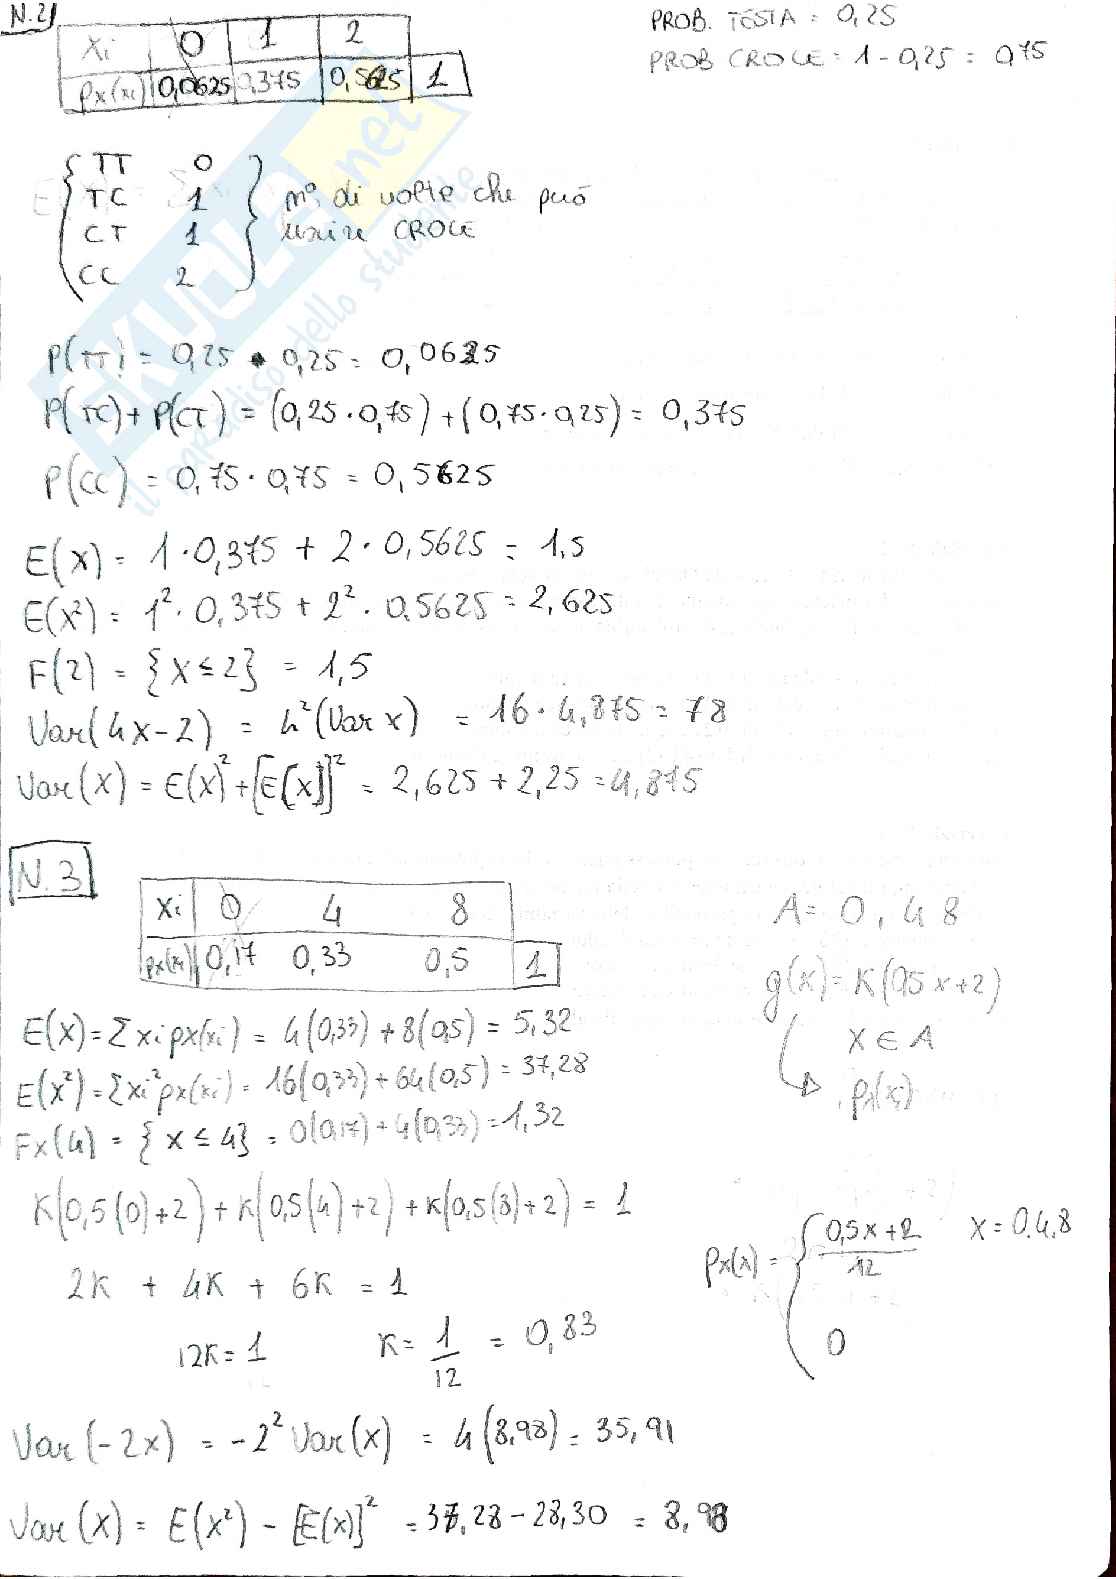 N.2
PROB. TESTA = 0,25
PROB CROCE = 1 - 0,25 = 0,75
xi 0 1 2
px(xi) 0,0625 0,375 0,5625 1
TT 0
TC 1
CT 1
CC 2
n° di volte che può
uscire CROCE
SKUOLA.net
il paradiso dello studente
P(TT) = 0,25 • 0,25 = 0,0625
P(TC) + P(CT) = (0,25 · 0,75) + (0,75 · 0,25) = 0,375
P(CC) = 0,75 · 0,75 = 0,5625
E(x) = 1 · 0,375 + 2 · 0,5625 = 1,5
E(x²) = 1² · 0,375 + 2² · 0,5625 = 2,625
F(2) = {x ≤ 2} = 1,5
Var(4x-2) = 4²(Var x) = 16 · 4,875 = 78
Var(x) = E(x)² + [E(x)]² = 2,625 + 2,25 = 4,875
N.3
xi 0 4 8
px(xi) 0,17 0,33 0,5 1
A = 0, 4 8
g(x) = K(0,5 x + 2)
x ∈ A
px(x)
E(x) = Σ xi px(xi) = 4(0,33) + 8(0,5) = 5,32
E(x²) = Σ xi² px(xi) = 16(0,33) + 64(0,5) = 37,28
Fx(4) = {x ≤ 4} = 0(0,17) + 4(0,33) = 1,32
K(0,5(0)+2) + K(0,5(4)+2) + K(0,5(8)+2) = 1
2K + 4K + 6K = 1
12K = 1 K = 1/12 = 0,83
px(x) = { (0,5x + 2)/12 x = 0.4,8
0
Var(-2x) = -2² Var(x) = 4(8,98) = 35,91
Var(x) = E(x²) - [E(x)]² = 37,28 - 28,30 = 8,98